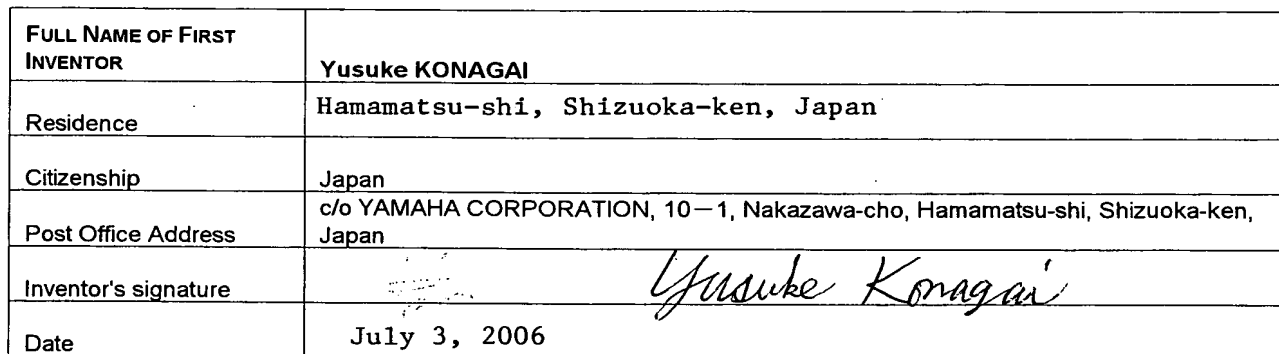 FULL NAME OF FIRST
INVENTOR
Yusuke KONAGAI
Residence
Hamamatsu-shi, Shizuoka-ken, Japan
Citizenship
Japan
Post Office Address
c/o YAMAHA CORPORATION, 10-1, Nakazawa-cho, Hamamatsu-shi, Shizuoka-ken,
Japan
Inventor's signature
Yusuke Konagai
Date
July 3, 2006